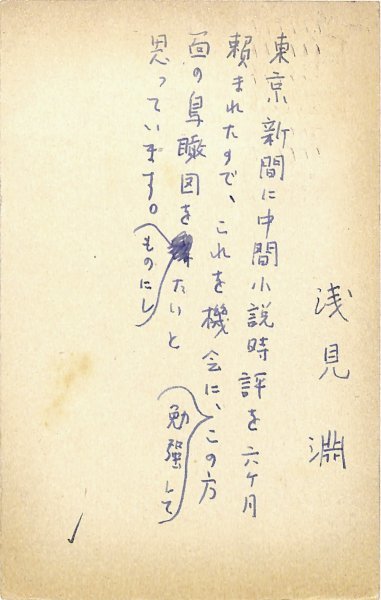 浅見淵
東京新聞に中間小説時評を六ケ月
頼まれたので、これを機会に、この方
面の鳥瞰図をたいと
思っています。
勉強して
ものにし